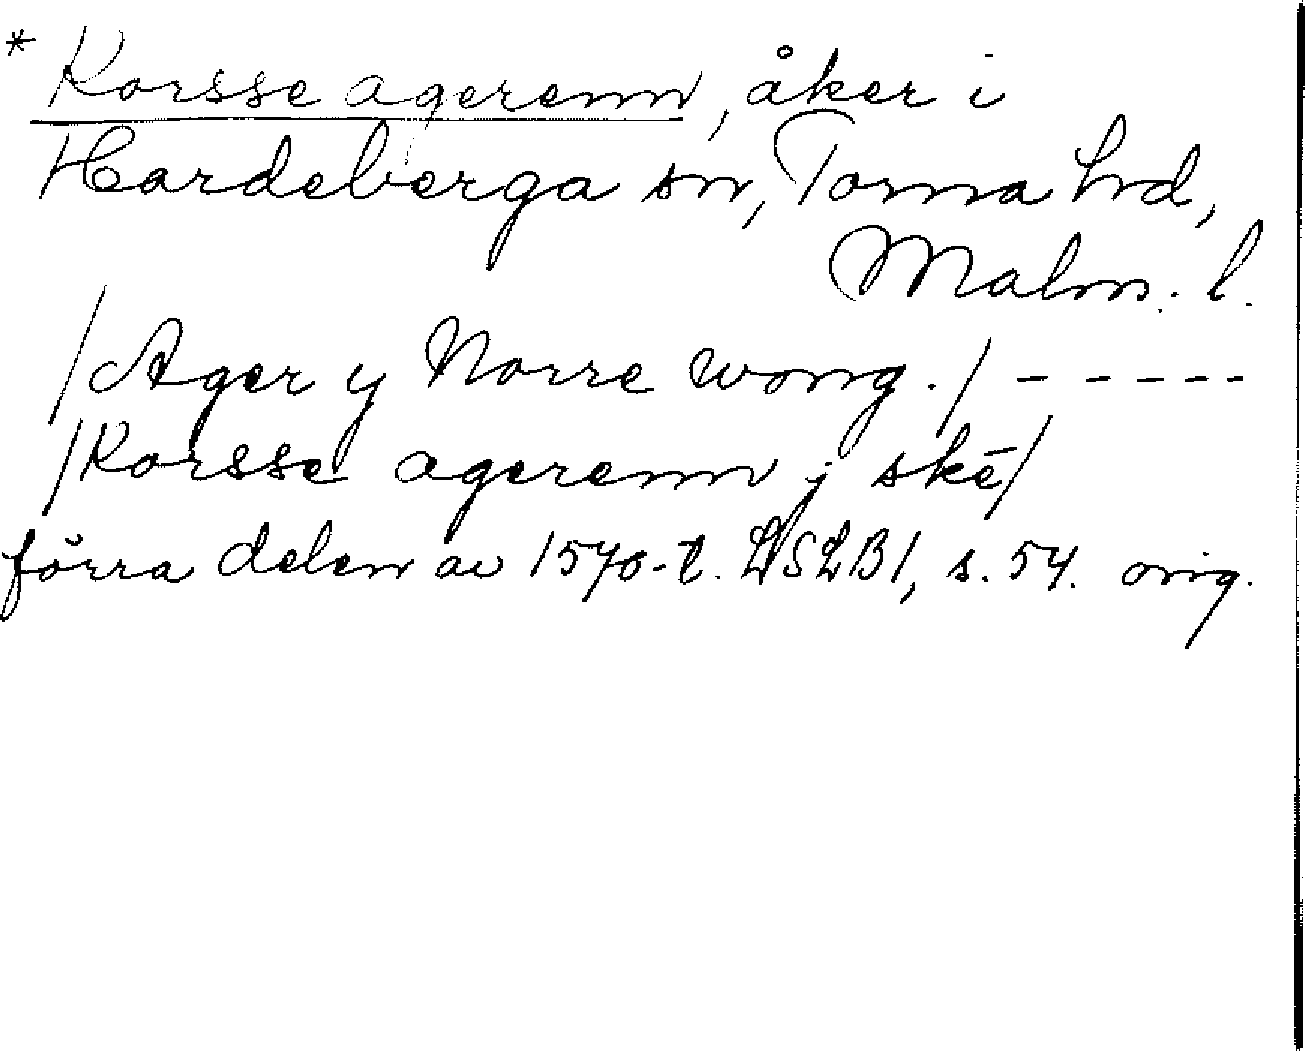 * Korsse agerenn, åker i
Hardeberga sn, Torna hd,
Malm. l.
/Ager y Norre wong./ - - - - -
/Korsse agerenn j ske/
förra delen av 1570-t. LSLB1, s. 54. orig.